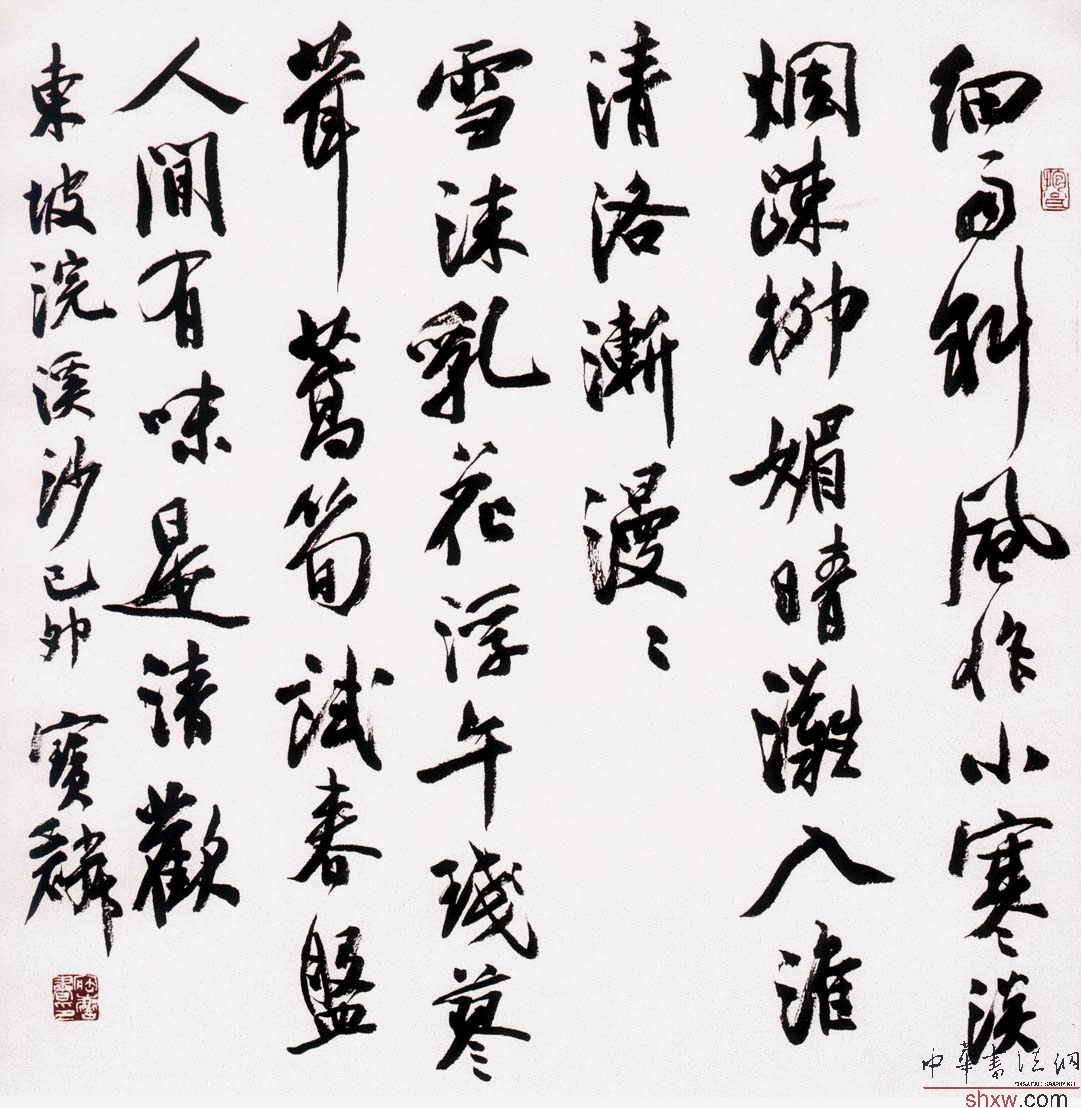 细雨斜風作小寒淡
烟疎柳媚晴灘入淮
清洛漸漫〻
雪沫乳花浮午琖蓼
茸蒿筍試春盤
人間有味是清歡
東坡浣溪沙己卯 寶麟
中華書法網
shxw.com